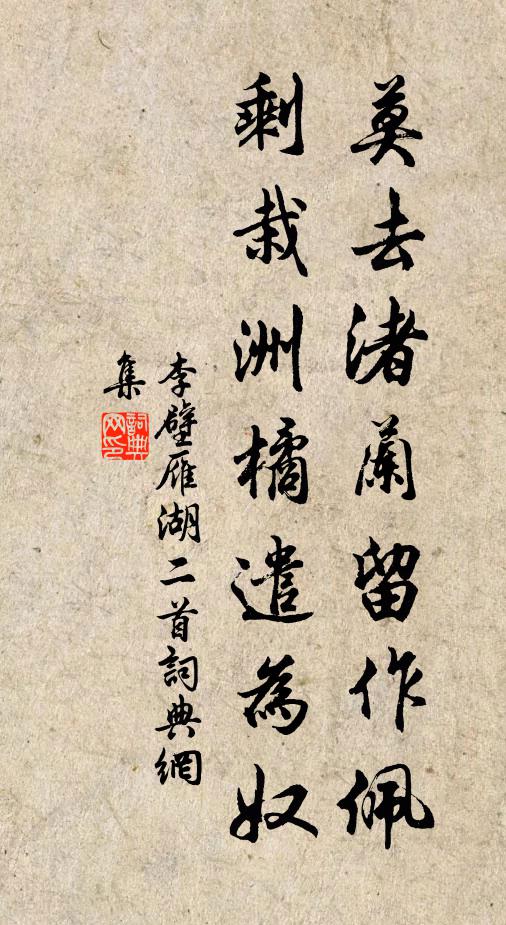 莫去渚蘭留作佩
剩栽洲橘遣為奴
李壁雁湖二首詞典網
集
詞典
网印